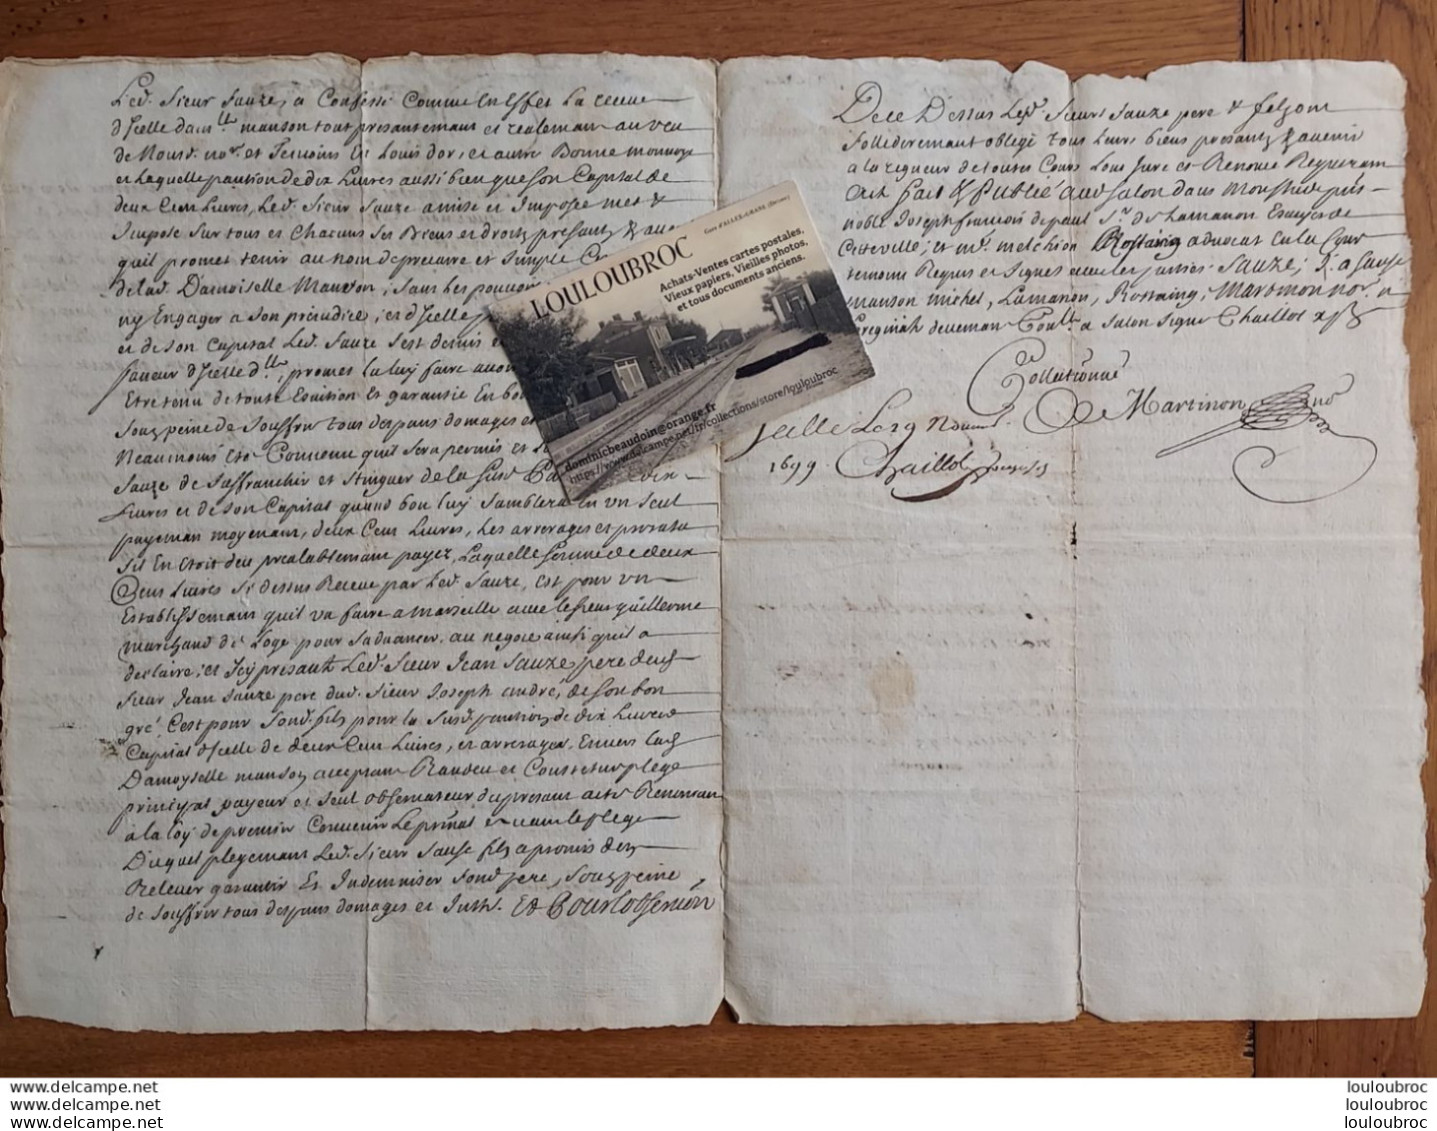 Led. Sieur Sauze, a Confessé Comme En Effet La receue
d'Icelle dam.lle manson tout presantemant et réalemain au veu
de Nousd. no.re et Temoins En Louis d'or, et autre Bonne monnoye
et Laquelle pantion de dix Livres aussi bien que son Capital de
deux Cens Livres, Led. Sieur Sauze a mise et Impose met &
Impose sur tous et Chacuns ses Biens et droits presants &
quil promet tenir au nom de precaire et simple
de lad. Damoiselle Manson, sans Les pouvoir
ny Engager a Son prejudice, et d'Icelle
et de son Capital Led. Sauze s'est demis
faveur d'Icelle d.lle, promet La luy faire
Etre tenu de toute Esvition et garantie En
Souz peine de Souffrir tous despans domages et
Neaumoins Este Convenu quil sera permis
Sauze de s'affranchir et stinguer de la susd.
Livres et de son Capital quand bon luy Samblera En un seul
payeman moyenant, deux Cens Livres, Les arrerages et prorata
sil En Etoit deu prealablemant payez, Laquelle somme de deux
Cens Livres si dessus Receue par Led. Sauze, Est pour un
Establissemant quil va faire a Marseille avec le sieur guillerme
marchand de Loge pour s'advancer au negoce ainsi quil a
declaré, et Icy presant Led. Sieur Jean Sauze pere
Sieur Jean Sauze pere dud. Sieur Joseph andré, de son bon
gré, C'est pour Sond. fils pour la Susd. pantion de dix Livres
Capital d'Icelle de deux Cens Livres, et arrerages, Envers lad.
Damoyselle manson acceptant Randeu et Constitue plege
principal payeur et seul observateur du presant acte Renonsan
a la loy de premier Convenir Le prinsi.al avant le plege
Duquel plegemant Led. Sieur Sauze fils a promis
Relever garantir Et Indemniser Sond. pere, Souz peine
de Souffrir tous despans domages et Inths. Et Pour l'obsersion
De ce Dessus Led. Sieurs Sauze pere & fils ont
sollideremant obligé tous Leurs biens presants & avenir
a la rigueur de toutes Cours L'ont juré et Renoncé Requeran
Acte fait & Publié aud. Salon dans
noble Joseph françois de paul S.r de Lamanon Escuyer de
Cette ville, et m.re melchion Rostaing advocat en la Cour
temoins Requis et Signés avec les parties. Sauze, J. a Sauze
manson michel, Lamanon, Rostaing, Martinon no.re a
L'original deueman Con.lle a Salon signé Chaillot
Collationné
Martinon no.re
1699. Chaillot
LOULOUBROC
Gare d'ALLEX-GRANE (Drôme)
Achats-Ventes cartes postales,
Vieux papiers, Vieilles photos,
et tous documents anciens.
dominicbeaudoin@orange.fr
https://www.delcampe.net/fr/collections/store/louloubroc
www.delcampe.net
www.delcampe.net
www.delcampe.net
louloubroc
louloubroc
louloubroc